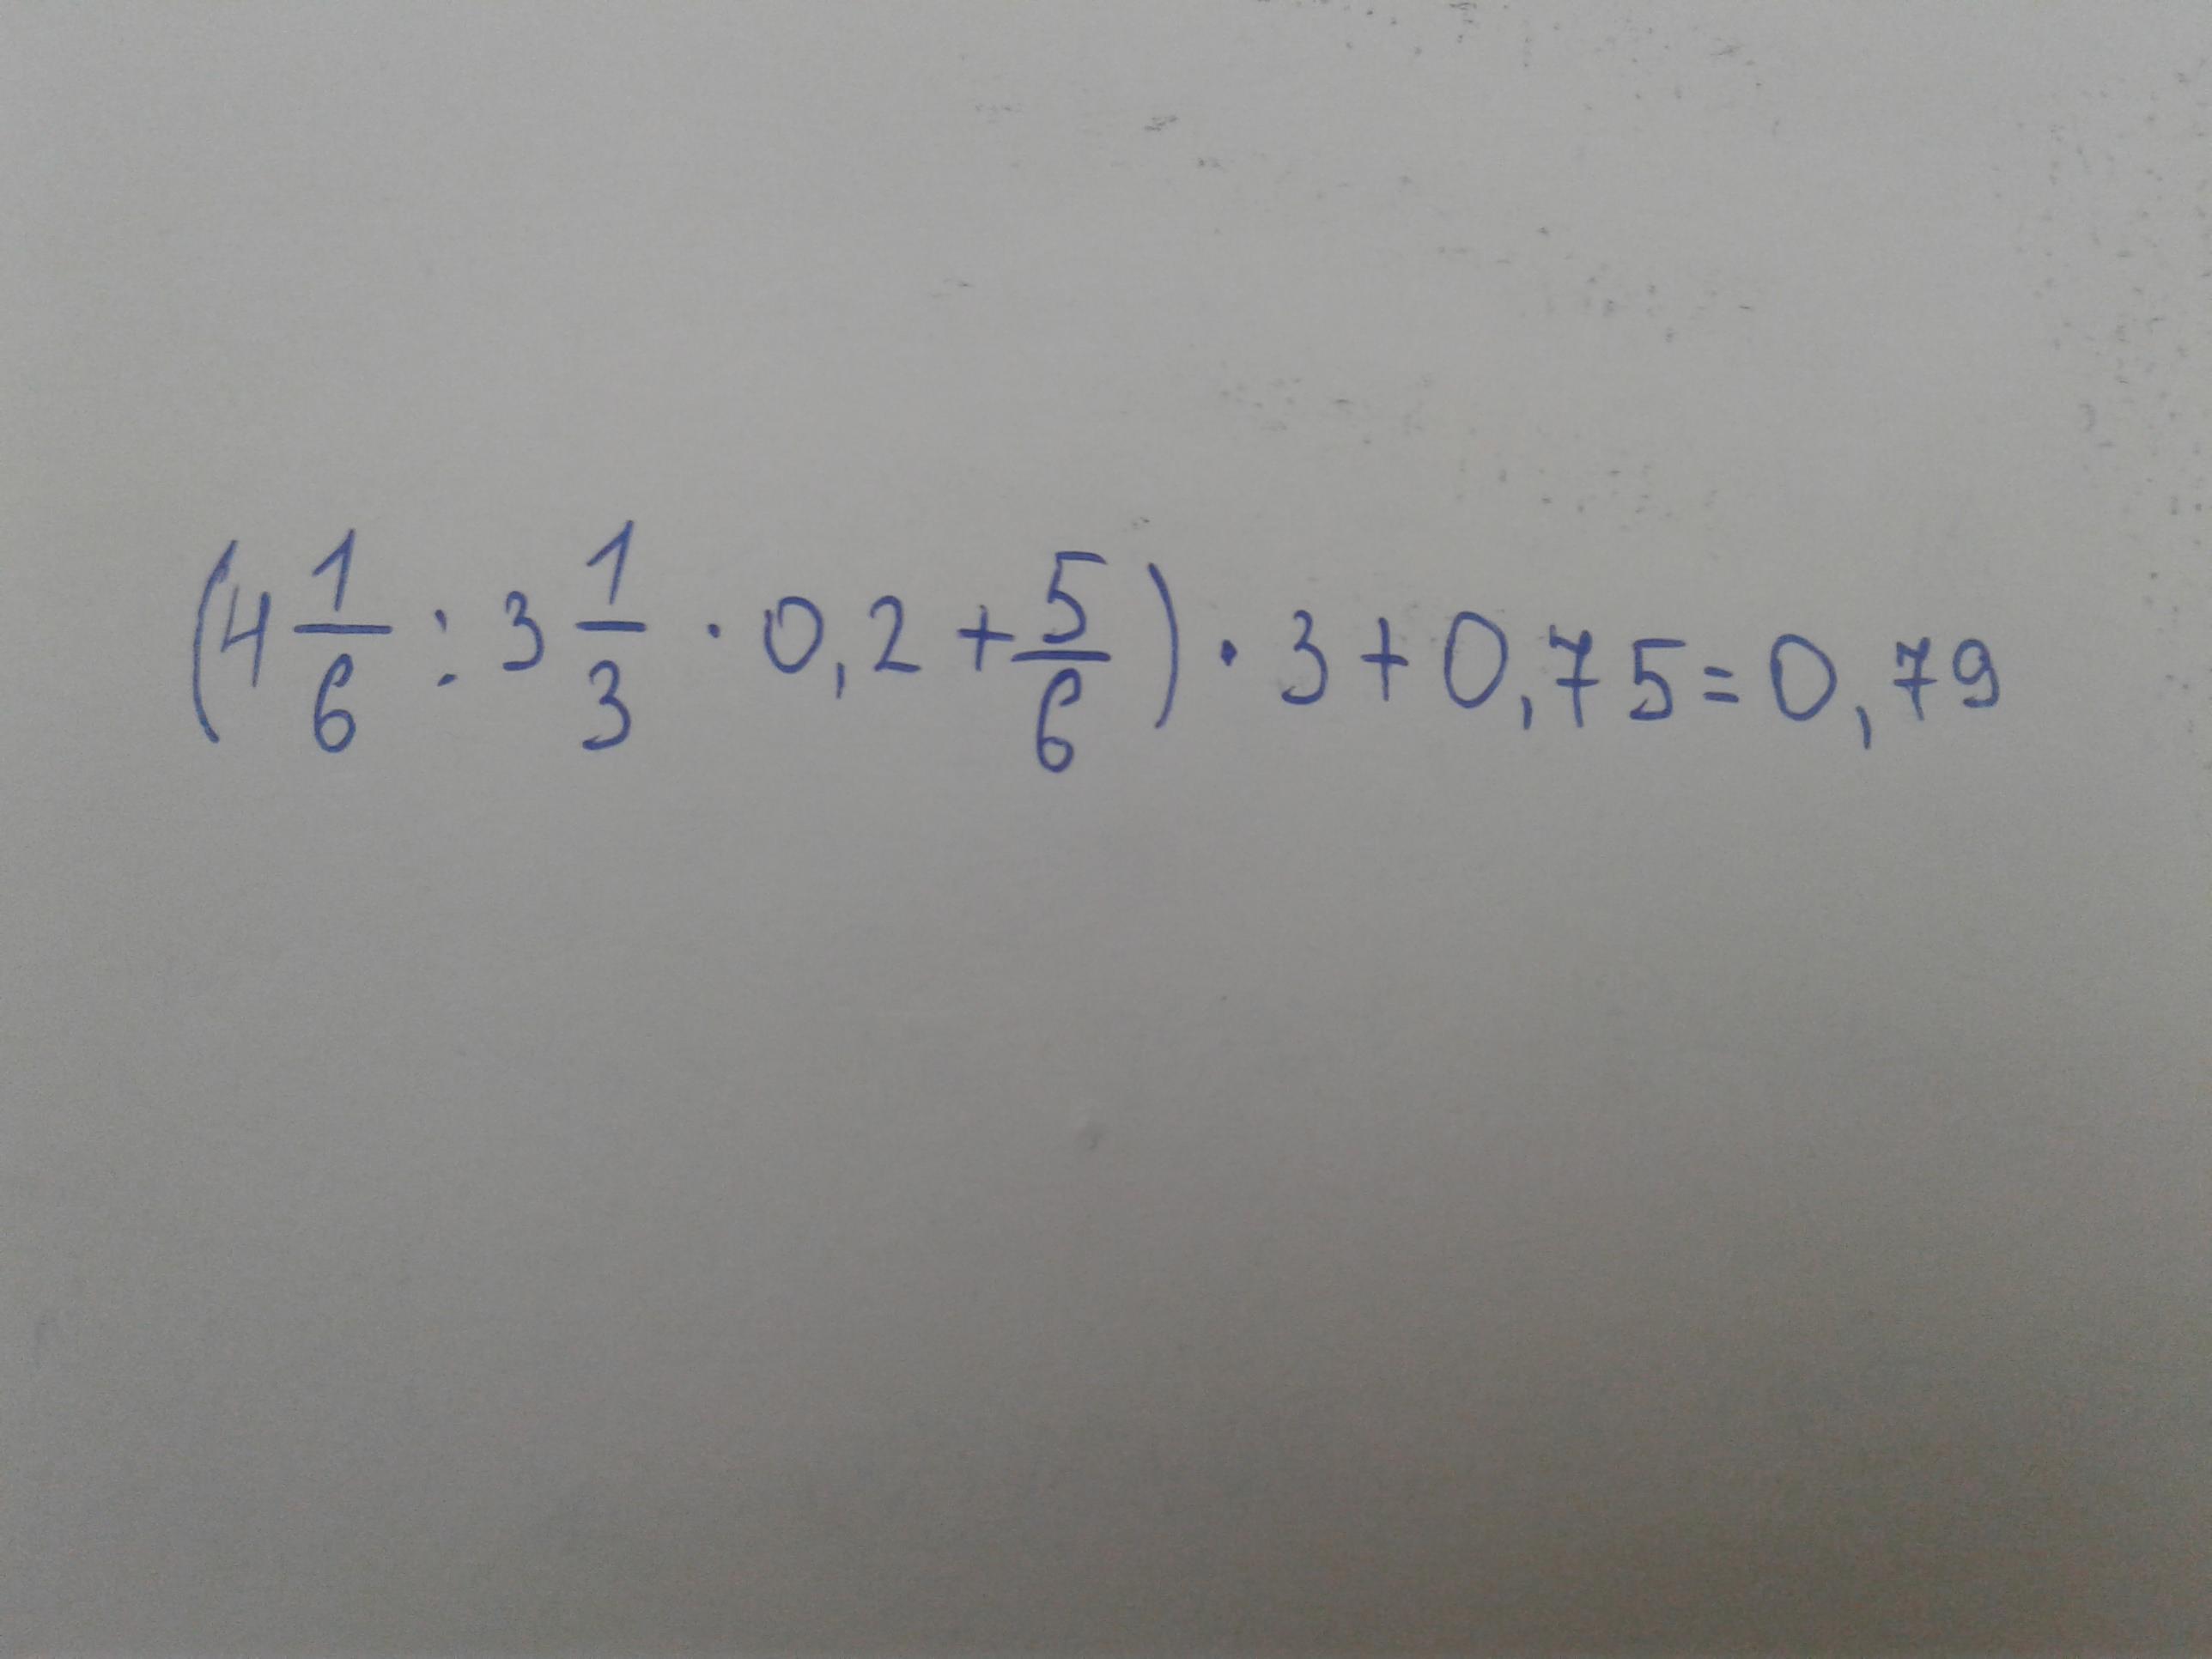 (4 1/6 : 3 1/3 · 0,2 + 5/6) · 3 + 0,75 = 0,79